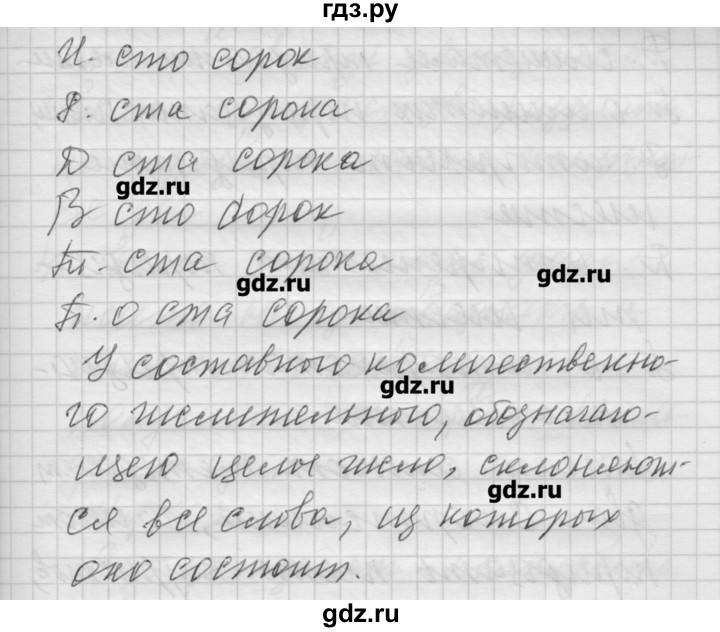 гдз.ру
И. сто сорок
Р. ста сорока
Д ста сорока
gdz.ru
В сто сорок
Тв. ста сорока
gdz.ru
gdz.ru
П. о ста сорока
У составного количественно-
gdz.ru
го числительного, обознача-
щего целое число, склоняют-
gdz.ru
ся все слова, из которых
оно состоит.
gdz.ru